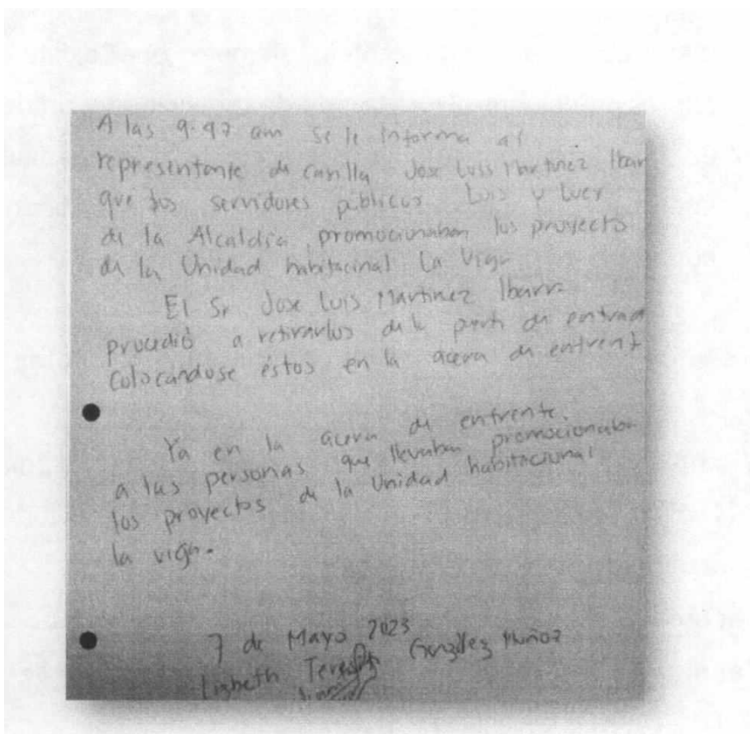 A las 9:47 am se le informa al
representante de casilla Jose Luis Martinez Ibar
que los servidores públicos Luis y
de la Alcaldía promocionaban los proyecto
de la Unidad habitacinal La Viga
El Sr Jose Luis Martinez Ibarra
procedió a retirarlos de la parte de entrad
Colocándose éstos en la acera de enfrent
Ya en la acera de enfrente.
a las personas que llevaban promocionaban
los proyectos de la Unidad habitacional
la viga.
7 de Mayo 2023
Lizbeth González Muñoz